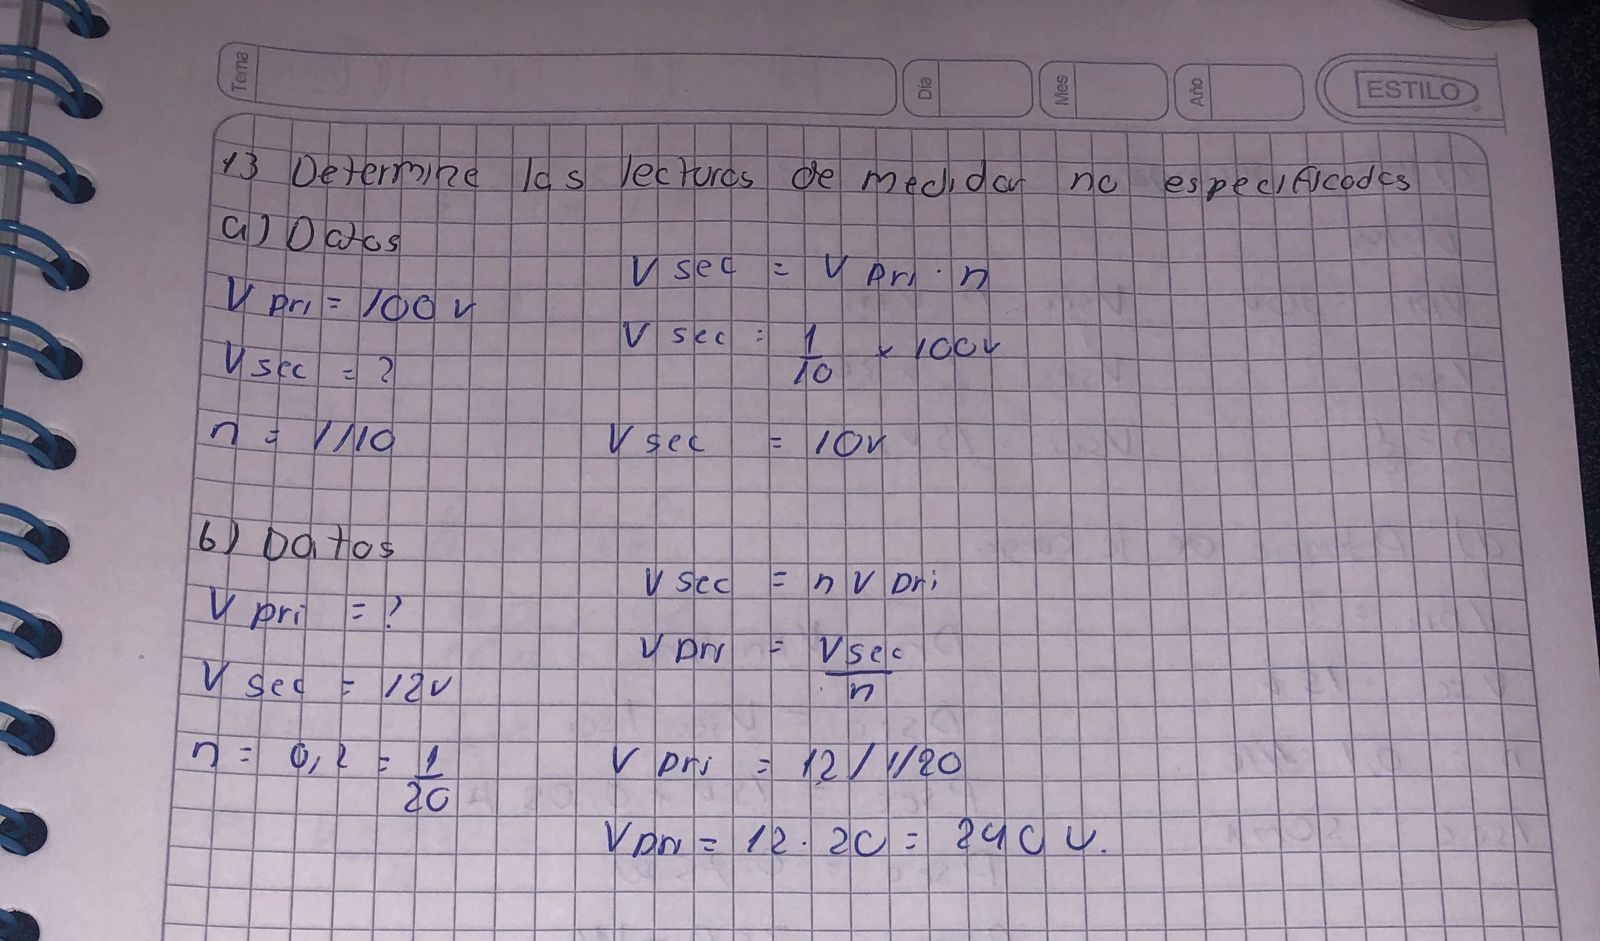 Tema
Día
Mes
Año
ESTILO
13 Determine las lecturas de medidar no especificodas
a) Datos
V pri = 100 v
V sec = ?
n = 1/10
V sec = V pri · n
V sec = 1/10 x 100v
V sec = 10v
b) Datos
V pri = ?
V sec = 12v
n = 0,2 = 1/20
V sec = n V pri
V pri = Vsec/n
V pri = 12/1/20
V pri = 12 · 20 = 240 v.